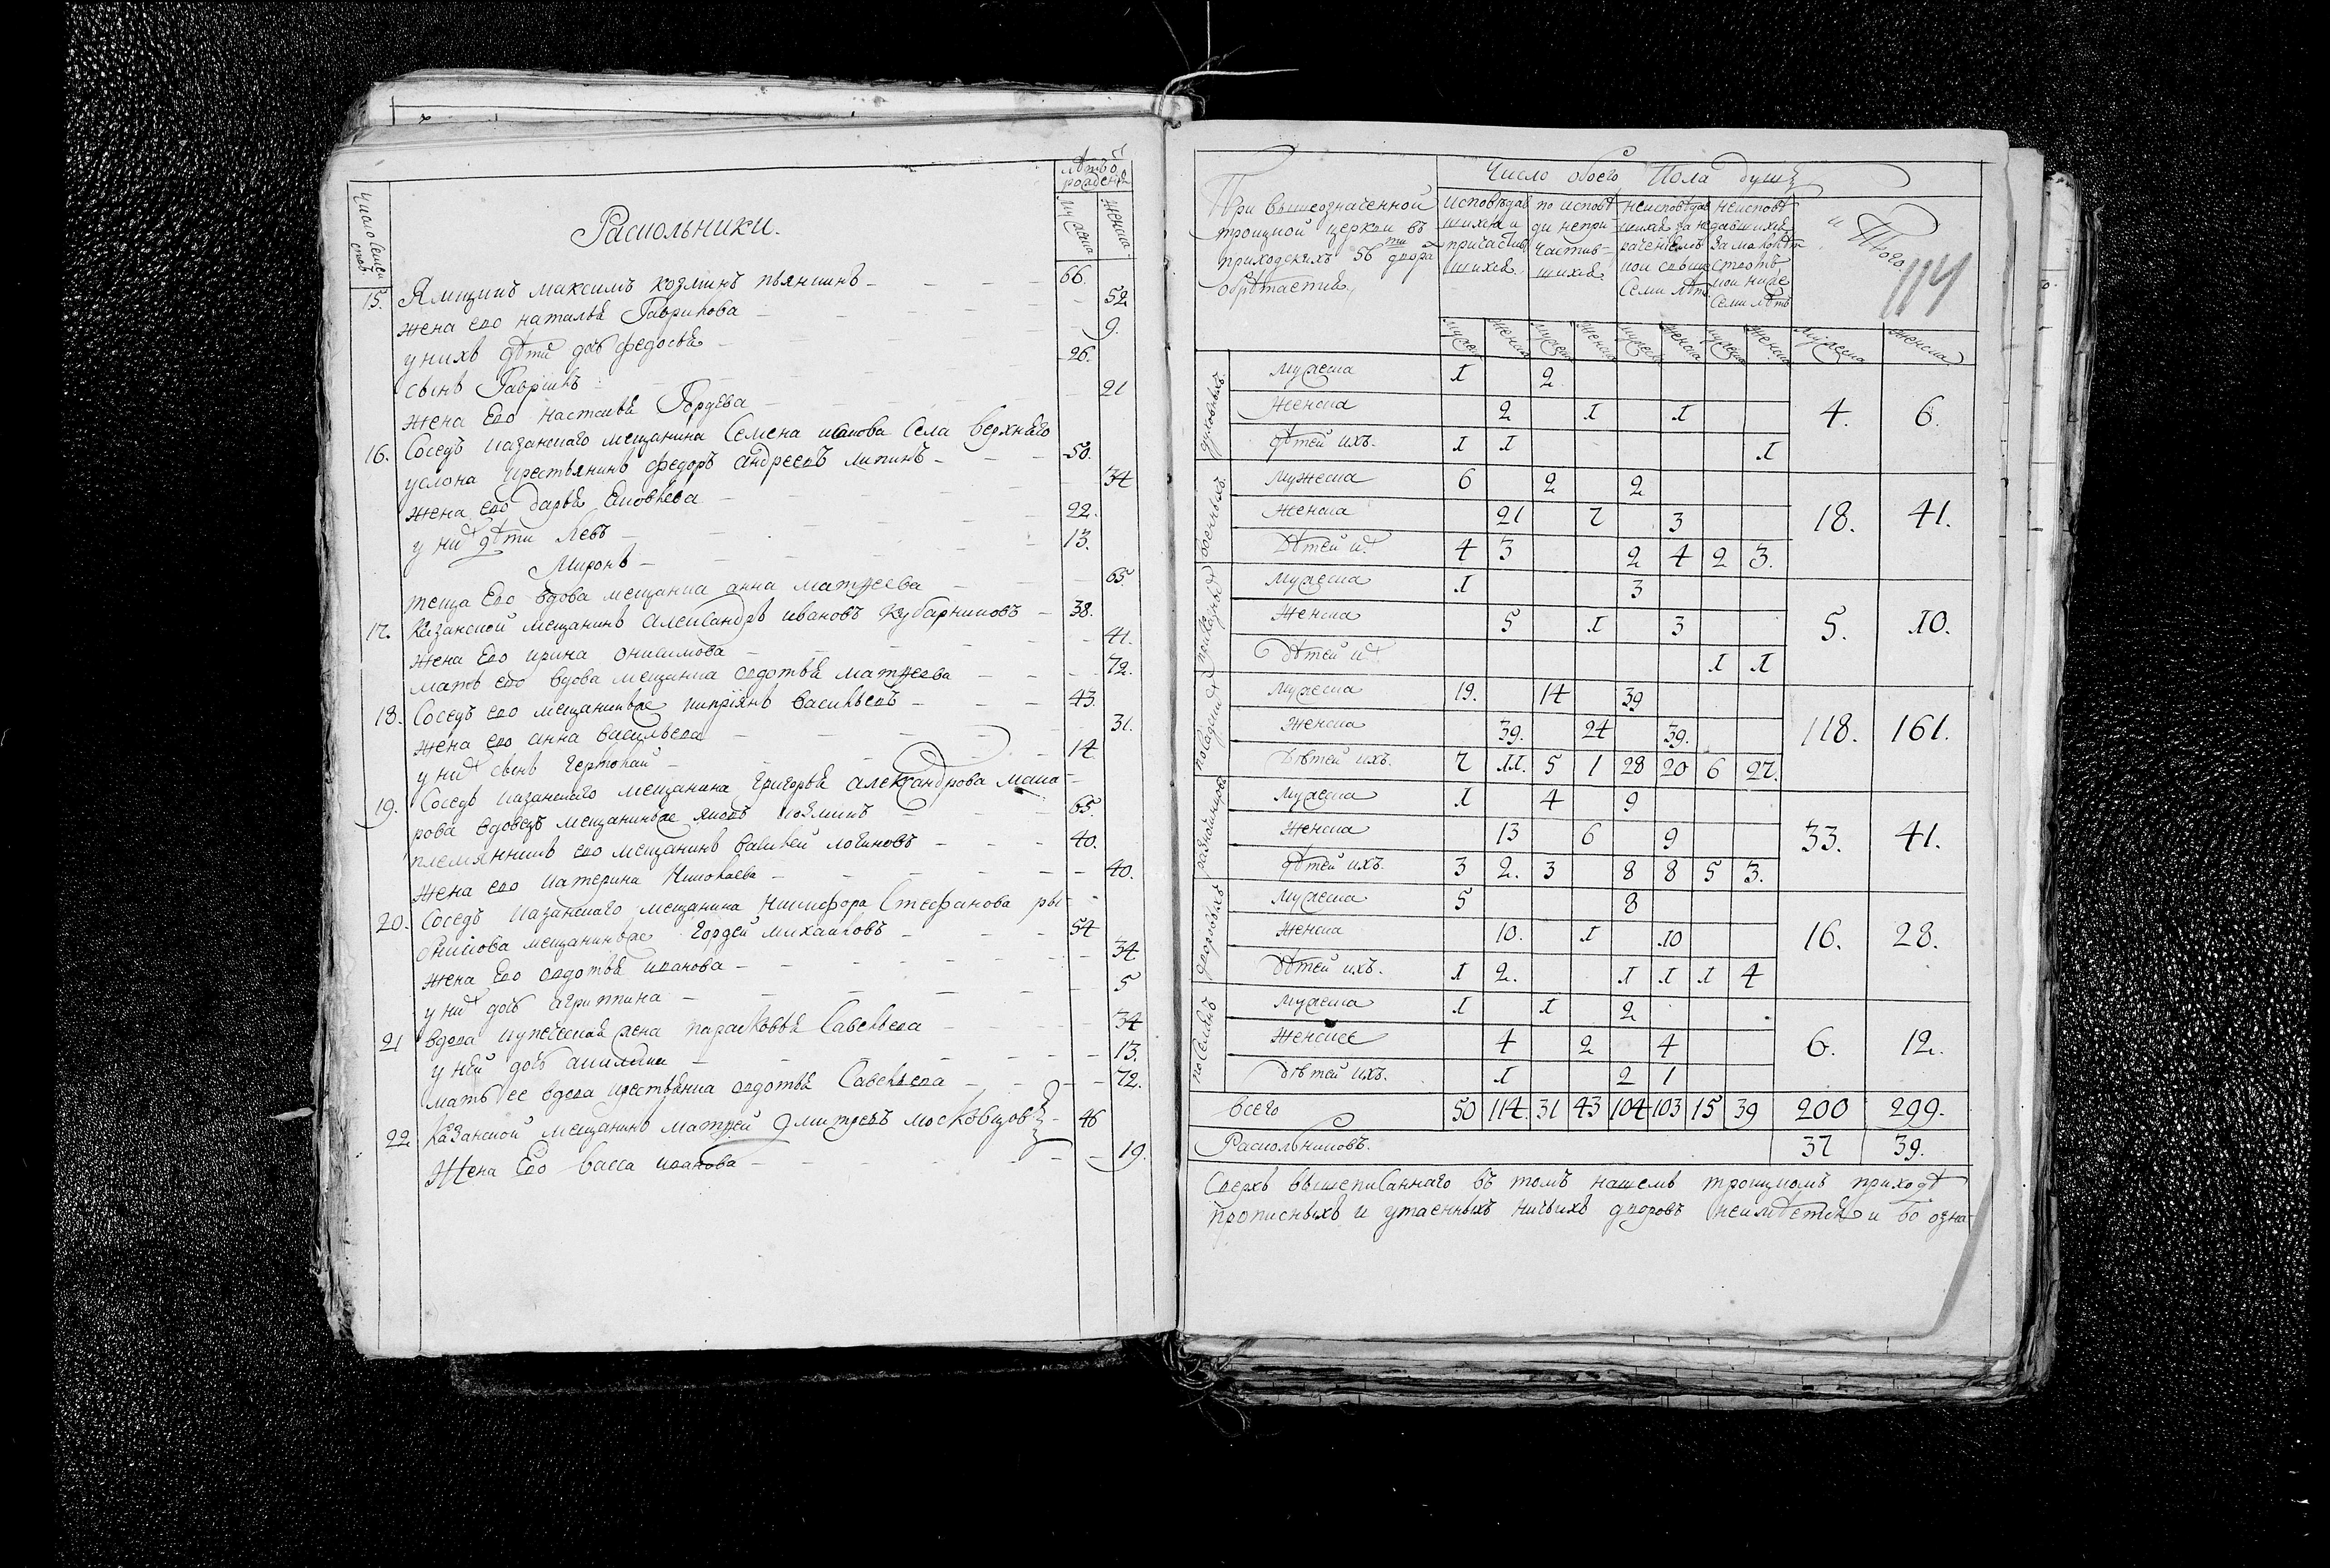 Лѣтъ ѿ рожденія
Число Семействъ
Мужеска
Женска
Раскольники.
15. Ямщикъ Максимъ козминъ пьянкинъ 66.
жена ево наталья Гаврилова 52
у нихъ дѣти дочь федосья 9.
сынъ Гаврилъ 26.
жена Ево настасья Гордѣева 21
16. Соседъ казанскаго мещанина Семена иванова Села верхняго
услона крестьянинъ федоръ андреевъ липинъ 50.
жена ево дарья яковлева 34
у них дѣти Левъ 22.
Миронъ 13.
теща Ево вдова мещанка анна матѳеева 65.
17. Казанской мещанинъ александръ ивановъ кубарниковъ 38.
жена Ево ирина онисимова 41.
мать ево вдова мещанка авдотья матѳеева 72.
18. Соседъ ево мещанинъ же кипріянъ васильевъ 43.
жена ево анна васильева 31.
у них сынъ 14.
19. Соседъ казанскаго мещанина григорья александрова мака-
рова вдовецъ мещанинъ же яковъ козминъ 65.
племянникъ ево мещанинъ василей логиновъ 40.
жена ево катерина николаева 40.
20. Соседъ казанскаго мещанина никифора Стефанова
мещанинъ же гордей михайловъ 54
жена Ево авдотья иванова 34
у них дочь агриппина 5
21 вдова купеческая жена парасковья Савельева 34
у ней дочь 13.
мать ее вдова крестьянка авдотья Савельева 72.
22 казанской мещанинъ матѳей дмитревъ московцовъ 46
Жена Ево васса иванова 19.
При вышеозначенной
троицкой церкви въ
приходскихъ 56 ти двора
обрѣтается
Число обоего Пола душъ
исповѣдав
шихся и
причастив
шихся
по исповѣ
ди непри-
частив-
шихся
неисповѣдав
шихся за не
раченіемъ
кои свыше
Семи лѣтъ
неисповѣ
давшихся
за малолѣт
ствомъ
кои ниже
Семи лѣтъ
итого
114
мужеска женска мужеска женска мужеска женска мужеска женска мужеска женска
духовныхъ
мужеска 1 2
женска 2 1 1 4. 6.
дѣтей ихъ. 1 1 1
военныхъ
мужеска 6 2 2
женска 21 7 3 18. 41.
дѣтей их 4 3 2 4 2 3.
приказныхъ
мужеска 1 3
женска 5 1 3 5. 10.
дѣтей их 1 1
посадскихъ
мужеска 19. 14 39
женска 39. 24 39. 118. 161.
Дѣтей ихъ. 7 11. 5 1 28 20 6 27.
разночинцовъ
мужеска 1 4 9
женска 13 6 9 33. 41.
дѣтей ихъ. 3 2. 3 8 8 5 3.
дворовыхъ
мужеска 5 8
женска 10. 1 10 16. 28.
дѣтей ихъ. 1 2. 1 1 1 4
поселянъ
мужеска 1 1 2
женскее 4 2 4 6. 12.
дѣтей ихъ. 1 2 1
всего 50 114 31 43 104 103 15 39 200 299.
Раскольниковъ. 37 39.
Сверхъ вышеписаннаго въ томъ нашемъ троицкомъ приходѣ
прописныхъ и утаенныхъ ничьихъ дворовъ неимѣется и во озна-